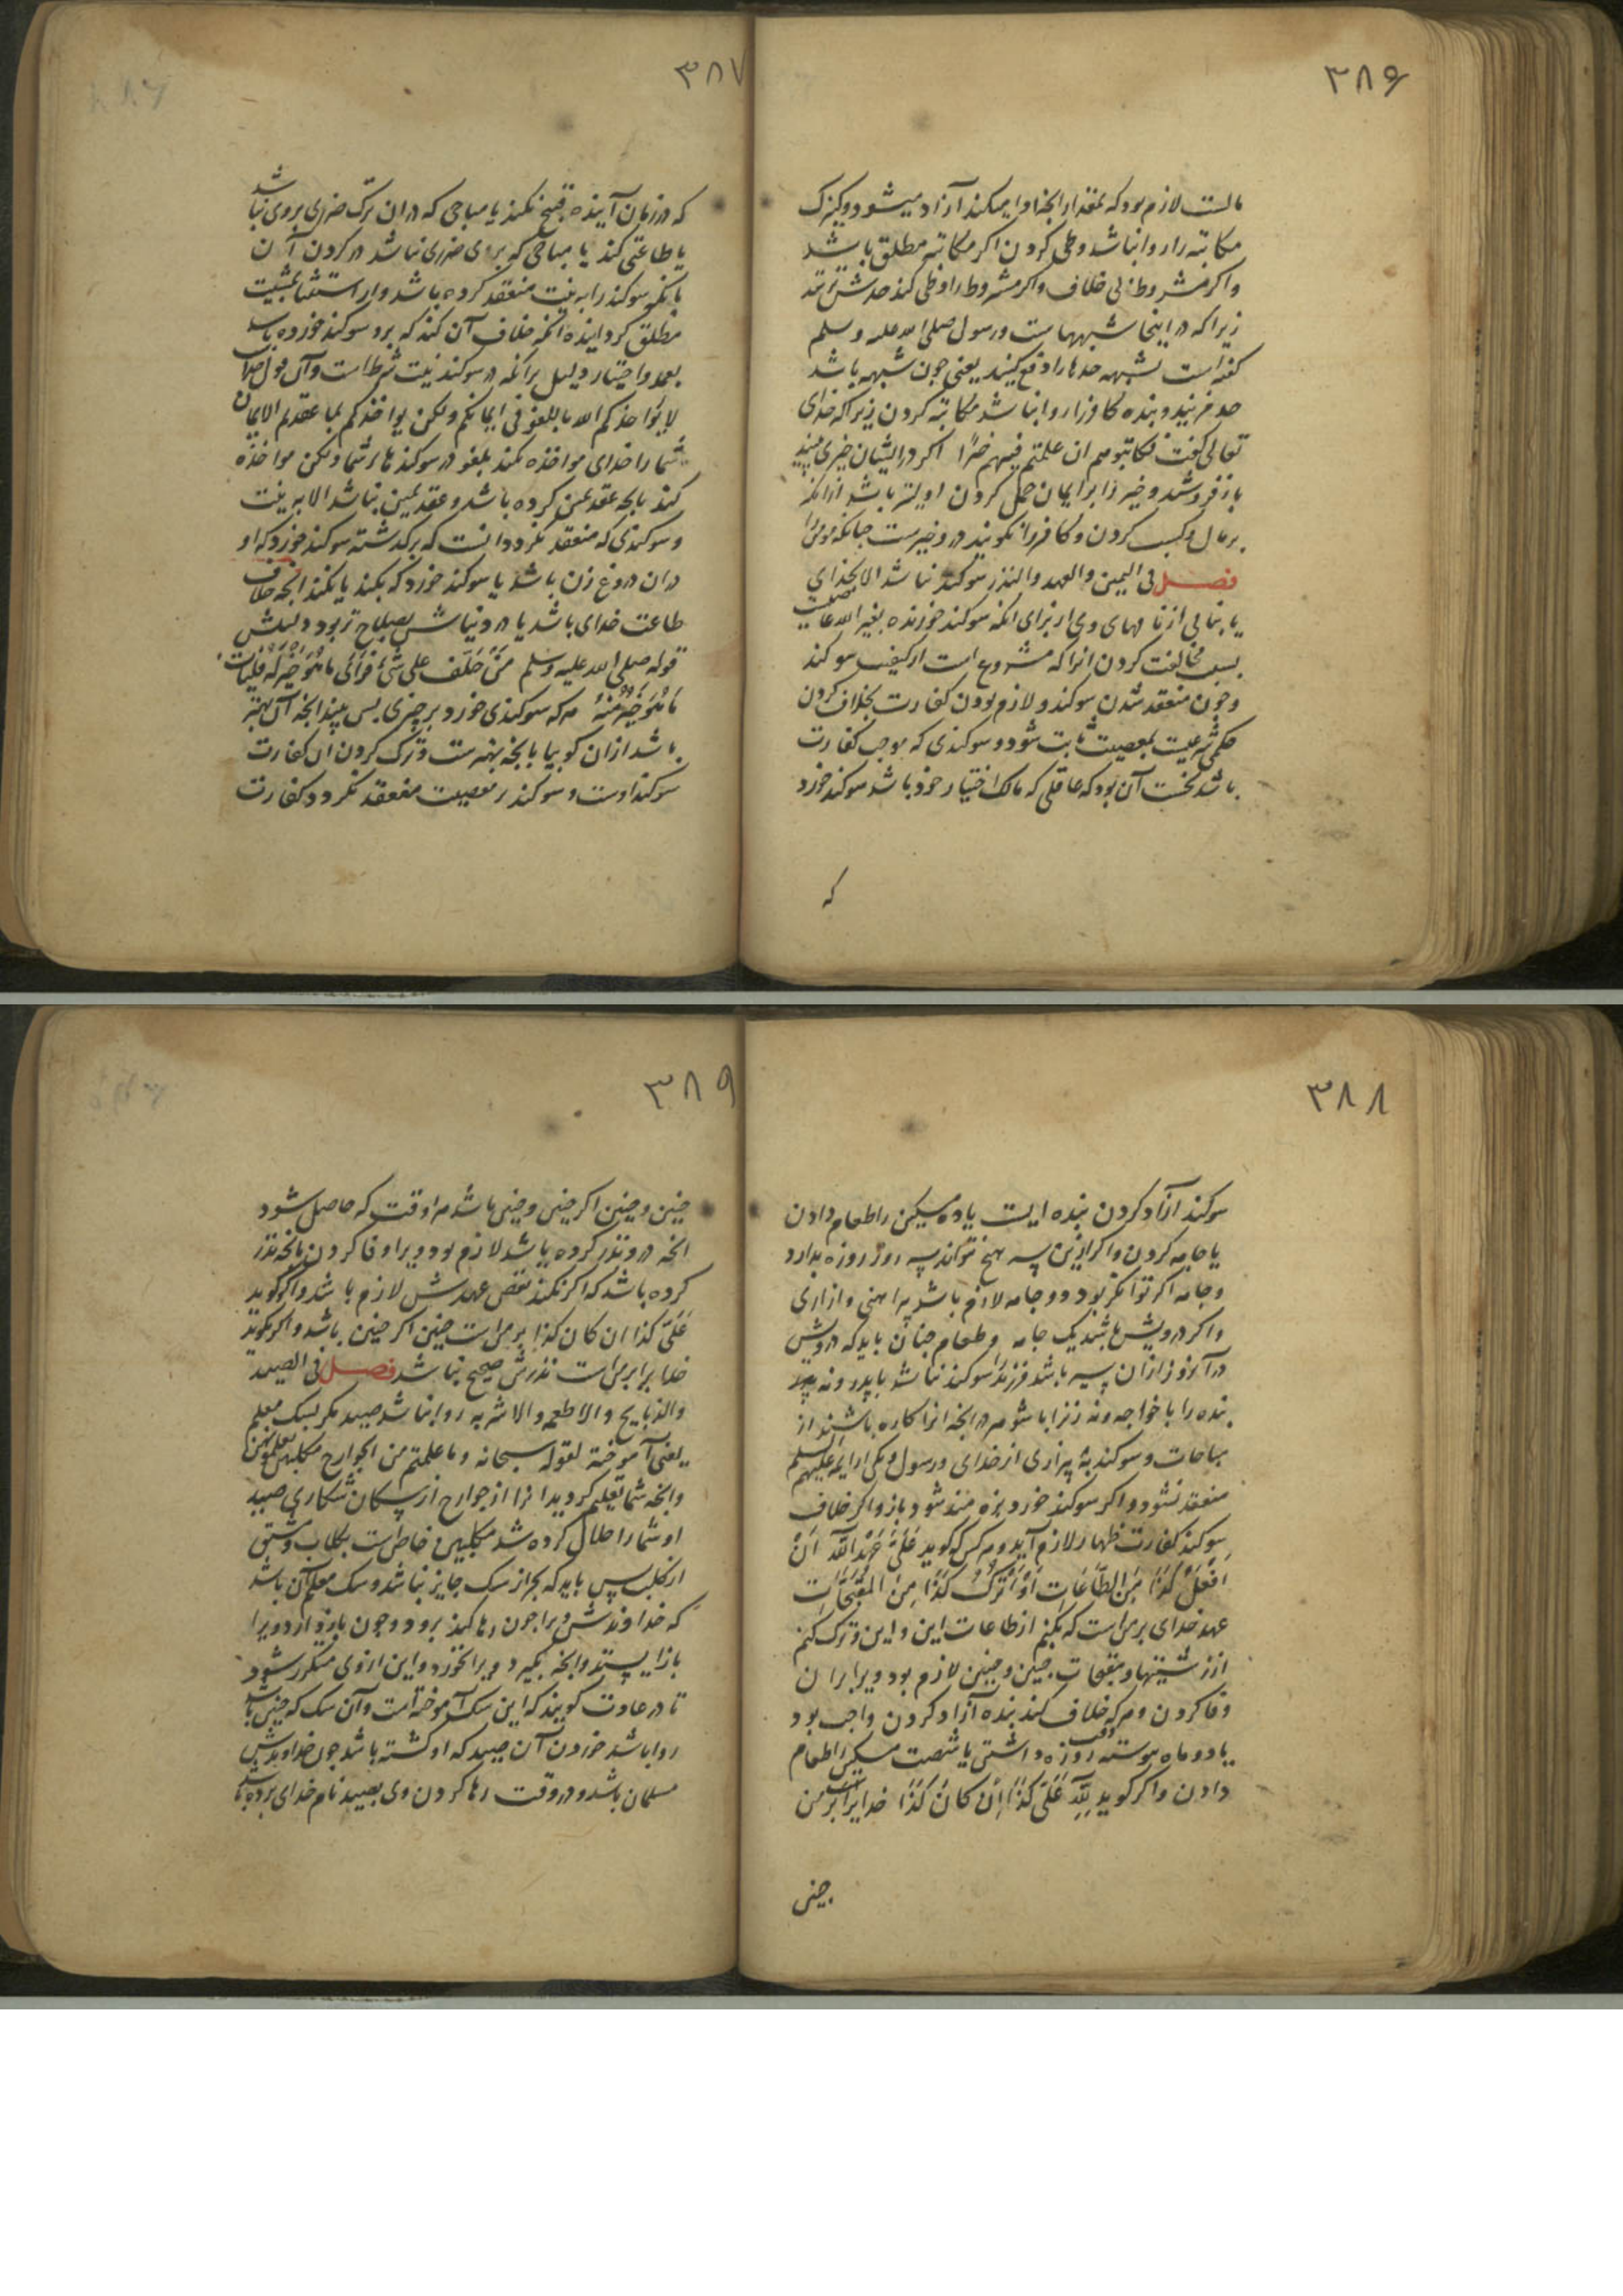 ۳۸۶
مالست لازم بود که بمقدار انچه ادا میکند آزاد میشود و کنیزک
مکاتبه را روا نباشد وطی کردن اگر مکاتبه مطلق باشد
و اگر مشروط بی خلاف و اگر مشروط را وطی کند حدش نزنند
زیرا که در اینجا شبهها ست و رسول صلی الله علیه و سلم
کفته است بشبهه حدها را دفع کنید یعنی چون شبهه باشد
حد مزنید و بنده کافر را روا نباشد مکاتبه کردن زیرا که خدای
تعالی کفت فکاتبوهم ان علمتم فیهم خیرا اکر در ایشان خیری بینید
باز فروشید و خیر را بر ایمان حمل کردن اولیتر باشد از انکه
بر مال و کسب کردن و کافر را نکویند در و خیرست چنانکه مومن را
فصل فی الیمین والعهد والنذر سوکند نباشد الا بخدای
یا بنامی از نامهای وی از برای انکه سوکند خورنده بغیر الله عاصیست
بسبب مخالفت کردن انرا که مشروع است از کیفیت سوکند
و چون منعقد شدن سوکند و لازم بودن کفارت بخلاف کردن
حکمی شرعیست بمعصیت ثابت نشود و سوکندی که موجب کفارت
باشد نخست آن بود که عاقلی که مالک اختیار خود باشد سوکند خورد
که
۳۸۷
که در زمان آینده قبیح نکند یا مباحی که در ان ترک ضرری بروی نباشد
یا طاعتی کند یا مباحی که برای ضرری نباشد در کردن آن
بانکه سوکند را به نیت منعقد کرده باشد و از استثنا بمشیت
مطلق کردانیده انکه خلاف آن کند که برو سوکند خورده باشد
بعمد و اختیار دلیل بر انکه در سوکند نیت شرط است و آن قول خدا
لا یؤاخذکم الله باللغو فی ایمانکم ولکن یواخذکم بما عقدتم الایمان
شما را خدای مواخذه نکند بلغو در سوکندهای شما ولکن مواخذه
کند بانچه عقد یمین کرده باشد و عقد یمین نباشد الا به نیت
و سوکندی که منعقد نکردد انست که بر کذشته سوکند خورد که او
در ان دروغ زن باشد یا سوکند خورد که بکند یا نکند انچه خلاف
طاعت خدای باشد یا در دنیاش بصلاح تر بود دلیلش
قوله صلی الله علیه و سلم مَنْ حَلَفَ علی شَیْءٍ فَرَأی ما هُوَ خَیْرٌ لَهُ فَلْیَأت
مَا هُوَ خَیْرٌ مِنْهُ هر که سوکندی خورد بر چیزی پس بیند انچه آن بهتر
باشد از ان کو بیا بانچه بهترست و ترک کردن ان کفارت
سوکند اوست و سوکند در معصیت منعقد نکردد کفارت
۳۸۸
سوکند آزاد کردن بنده ایست یا ده مسکین را طعام دادن
یا جامه کردن و اکر ازین سه هیچ نتواند سه روز روزه بدارد
و جامه اکر توانکر بود دو جامه لازم باشد پیراهنی و ازاری
و اکر درویش باشد یک جامه و طعام چنان باید که درویش
در آن روز از ان سیر باشد فرزند را سوکند نباشد با پدر و نه
بنده را با خواجه و نه زنرا با شوهر در انچه انرا کاره باشند از
مباحات و سوکند به بیزاری از خدای و رسول و یکی از ایمه علیهم السلم
منعقد نشود و اکر سوکند خورد بزه مند شود باز و اکر خلاف
سوکند کفارت ظهار لازم آید و هر کس که کوید عَلَیَّ عَهْدُ اللّهِ اَنْ
اَفْعَلَ کَذَا مِنَ الطَّاعَاتِ اَوْ اَتْرُکَ کَذَا مِنَ المُقَبَّحَات
عهد خدای بر من است که بکنم از طاعات این و این و ترک کنم
از زشتیها و مقبحات چنین و چنین لازم بود ویرا بر ان
وفا کردن و هر که خلاف کند بنده آزاد کردن واجب بود
یا دو ماه پیوسته روزه داشتن یا شصت مسکین را طعام
دادن و اکر کوید لِلّهِ عَلَیَّ کَذَا اِنْ کَانَ کَذَا خدایرا بر من
چنین
۳۸۹
چنین و چنین اکر چنین و چنین باشد هر اوقت که حاصل شود
انچه در و نذر کرده باشد لازم بود ویرا وفا کردن بانچه نذر
کرده باشد که اکر نکند نقض عهدش لازم باشد و اکر کوید
عَلَیَّ کذا ان کان کذا بر من است چنین اکر چنین باشد و اکر نکوید
خدا یرا بر من است نذرش صحیح نباشد فصل فی الصید
والذبایح والاطعمه والاشربه روا نباشد صید مکر بسک معلم
یعنی آموخته لقوله سبحانه وما علمتم من الجوارح مکلبین تعلمونهن
و انچه شما تعلیم کردید انرا از جوارح از سکان شکاری صید
او شما را حلال کرده شد مکلبین خاص است بکلاب و مشتق
از کلب پس باید که بجز از سک جایز نباشد و سک معلم آن باشد
که خداوندش ویرا چون رها کند برود و چون باز دارد ویرا
باز ایستد و انچه بکیرد ویرا نخورد و این از وی متکرر شود
تا در عادت کویند که این سک آموخته است و آن سک که چنین باشد
روا باشد خوردن آن صید که او کشته باشد چون خداوندش
مسلمان باشد و در وقت رها کردن وی بصید نام خدای برده باشد